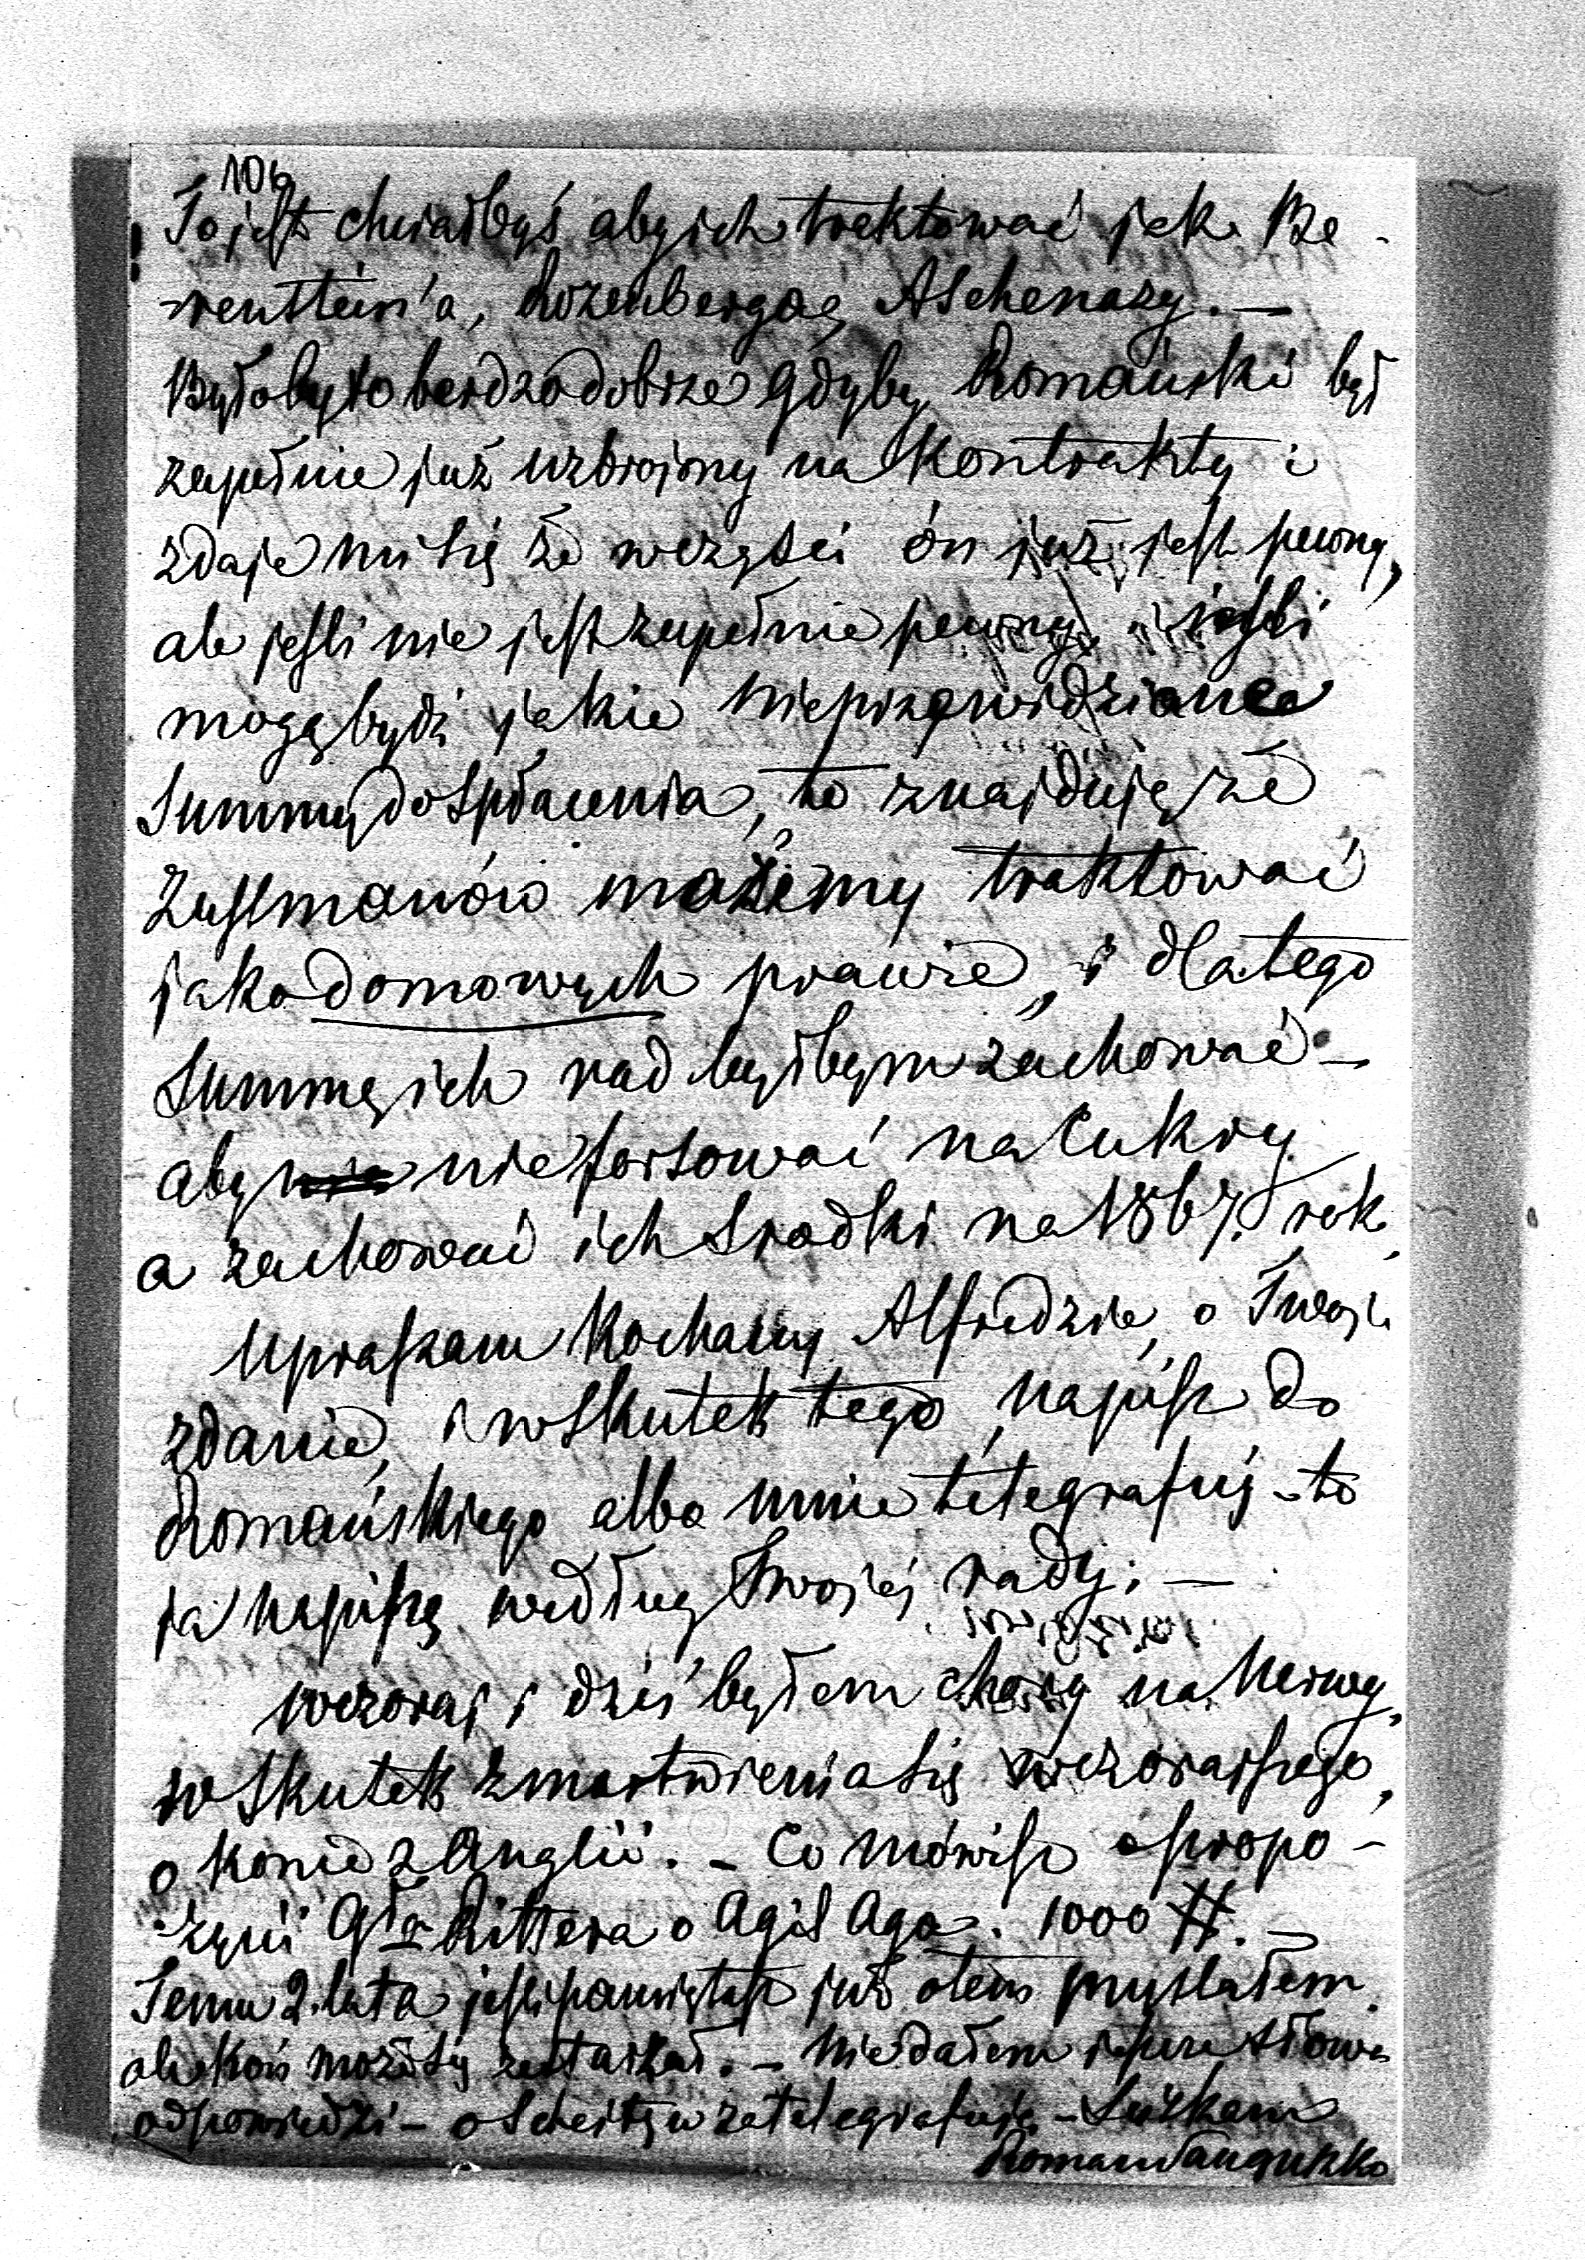 106
To jest chciałbyś aby ich traktować jak Be-
-renttein'a, Rozenberga, Aschenazy. —
Byłoby to bardzo dobrze gdyby Romański był
zupełnie już uzbrojony na Kontrakty i
zdaje mi się że w części ón już jest pewny,
ale jesli nie jest zupełnie pewny, i jesli
mogą bydź jakie nieprzewidziane
Summy do Spłacenia, to znajduję że
Zusmanów możemy traktować
jako domowych prawie, i dlatego
Summę ich rad byłbym zachować —
aby nie forsować na Cukry
a zachować ich Srodki na 1867. rok.
Upraszam Kochany Alfredzie, o Twoje
zdanie, i wskutek tego, napisz do
Romańskiego albo mnie telegrafuj - to
ja napiszę według Twojej rady. —
wczoraj i dziś byłem chory na Nerwy,
w Skutek zmartwienia się wczorajszego,
o Konie z Anglii. — Co mówisz o propo-
zycii Gła Rittera o Agil Aga. 1000 #. —
Temu 2. lata jesli pamiętasz już o tem myslałem.
ale koń może się zestarzał. — Nie dałem jeszcze słowa
odpowiedzi — zatelegrafuję — Sciskam
Roman Sanguszko